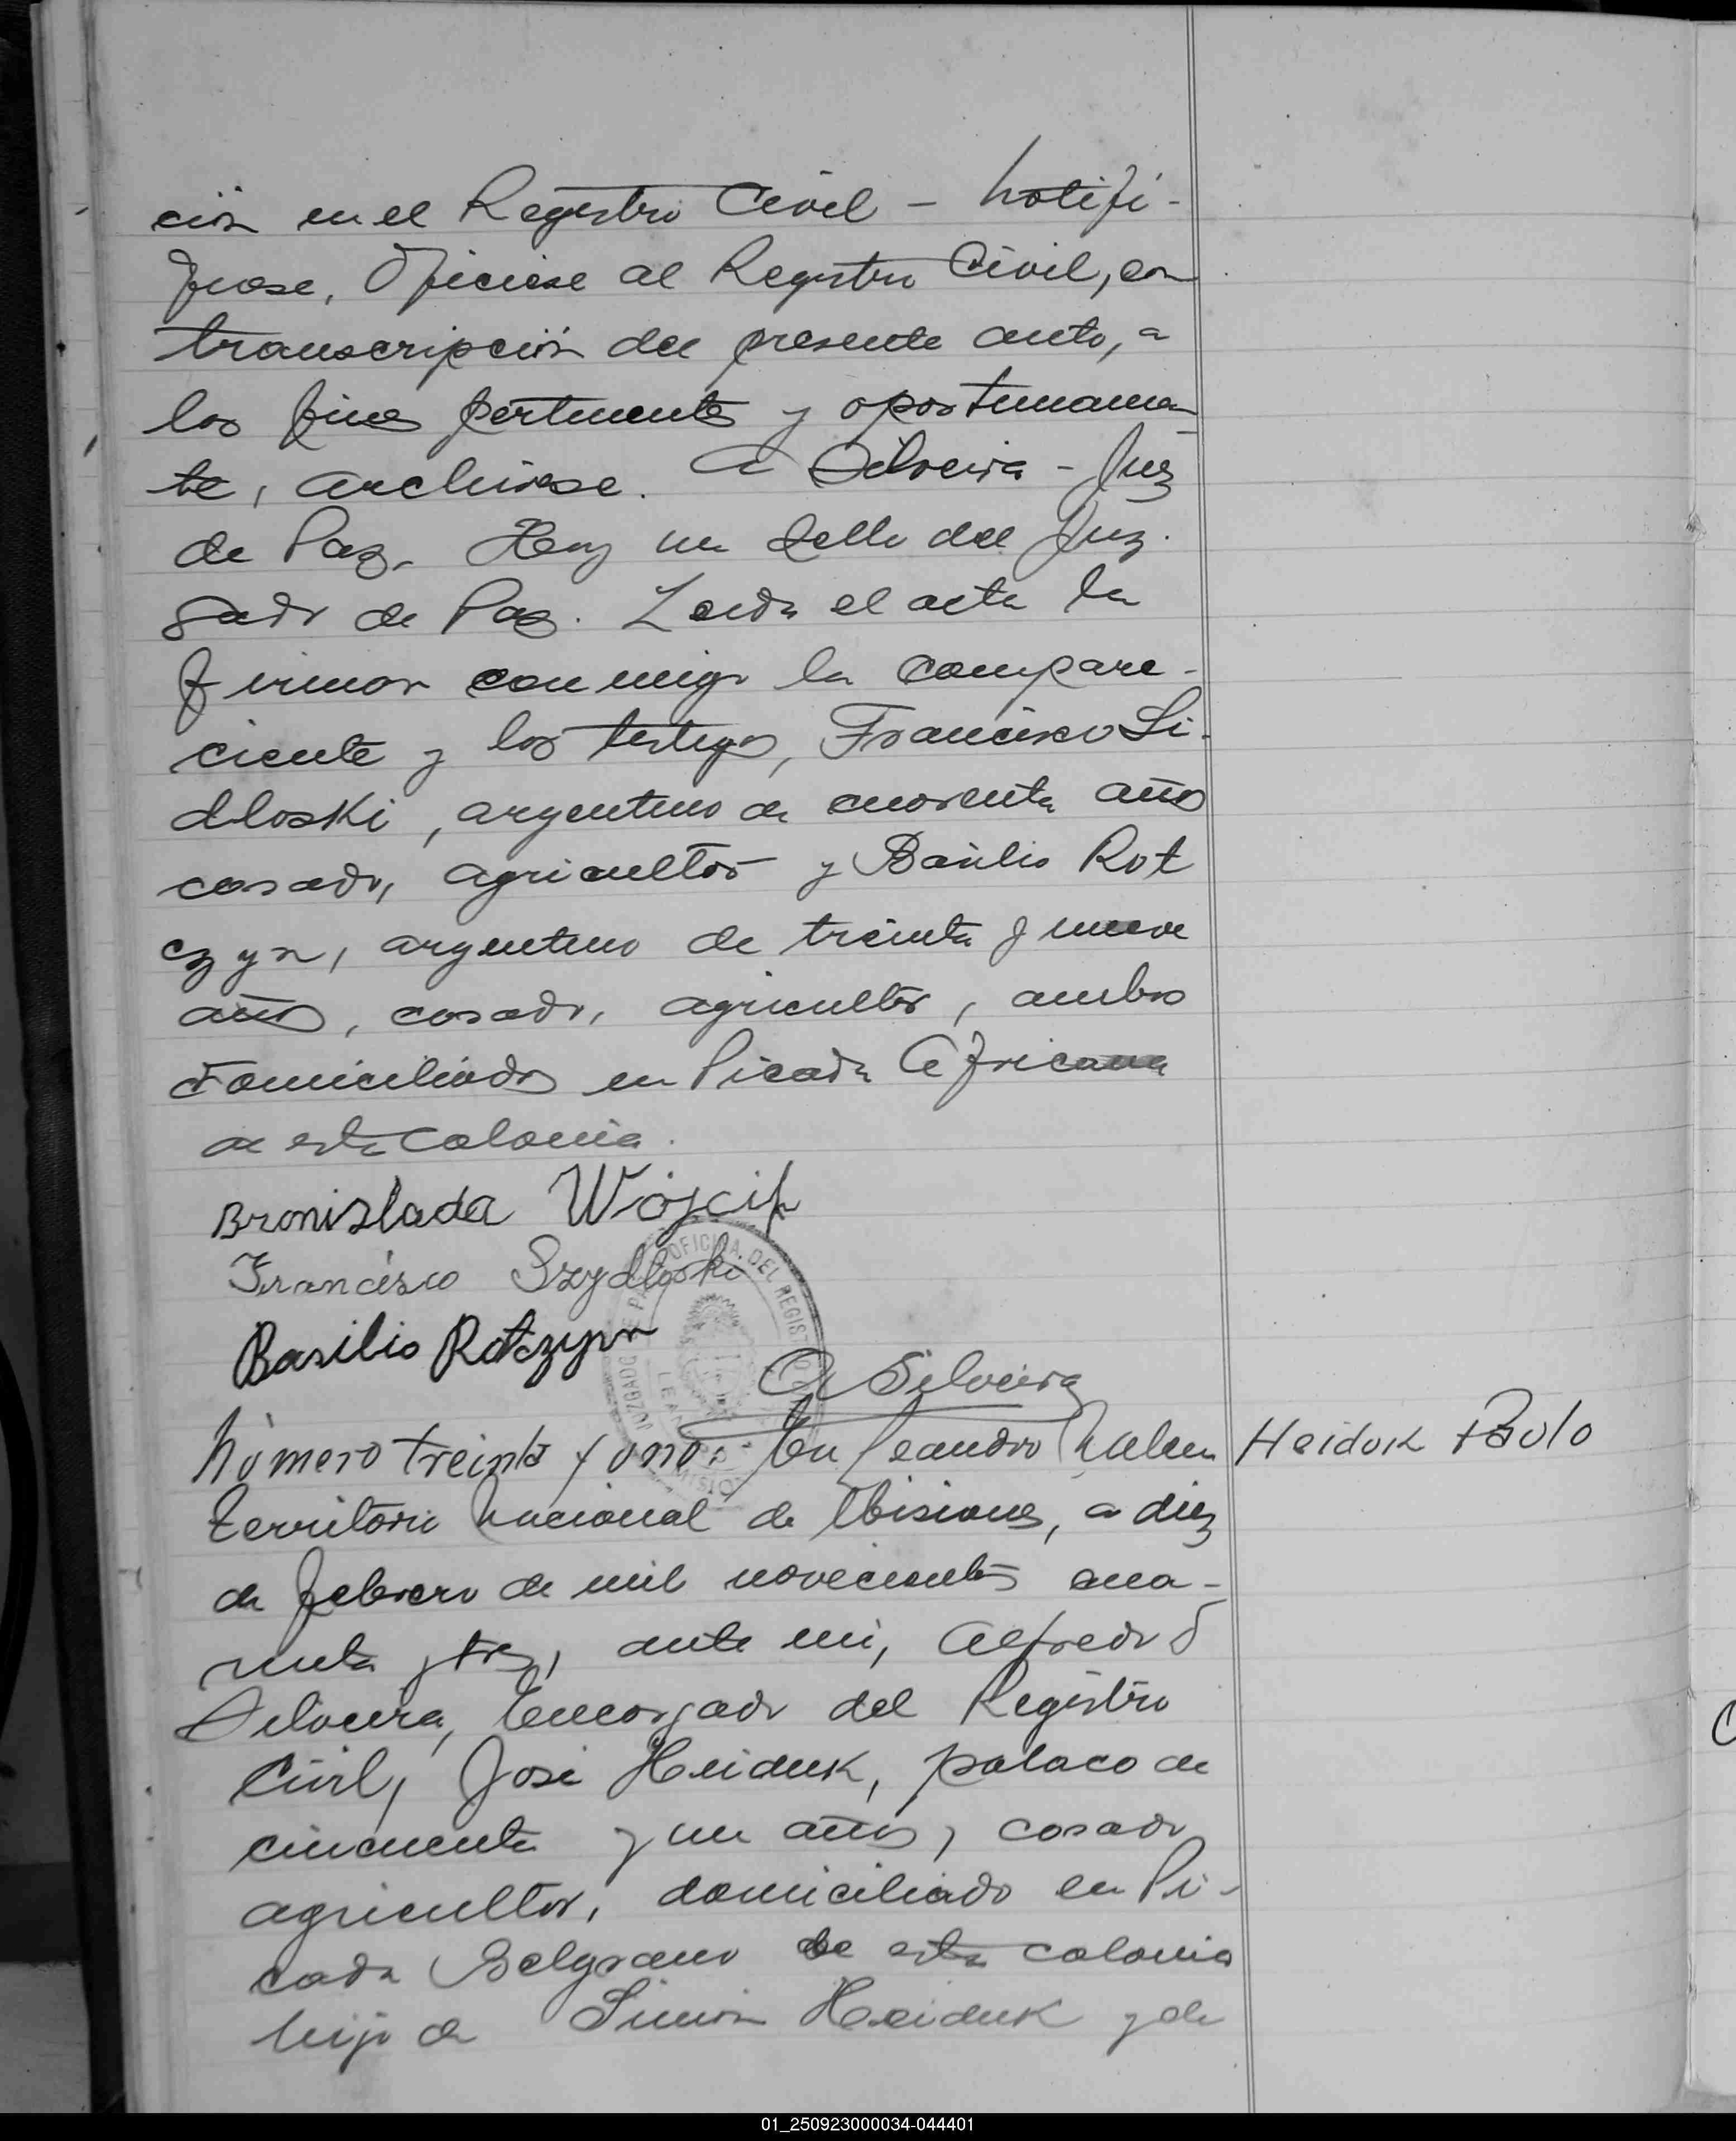 ción en el Registro Civil – Notifí-
quese, Ofíciese al Registro Civil, con
transcripción del presente auto, a
los fines pertinentes y oportunamen
te, archívese. A Silveira – Juez
de Paz. Hay un sello del Juz-
gado de Paz. Leída el acta la
firman conmigo la compare-
ciente y los testigos, Francisco Si-
dloski, argentino de cuarenta años
casado, agricultor y Basilio Rot
czyn, argentino de treinta y nueve
años, casado, agricultor, ambos
domiciliados en Picada Africana
de esta colonia.
Bronislada Wójcik
Francisco Szydloski
Basilio Rotczyn
OFICINA DEL REGISTRO
JUZGADO DE PA
LEAN
MISIO
A Silveira
Número treinta y uno: En Leandro N Alem
Heiduk Paulo
territorio Nacional de Misiones, a diez
de febrero de mil novecientos cua-
renta y tres, ante mi, Alfredo S
Silveira, Encargado del Registro
Civil, José Heiduk, polaco de
cincuenta y un años, casado
agricultor, domiciliado en Pi-
cada Belgrano de esta colonia
hijo de Simón Heiduk y de
01_250923000034-044401